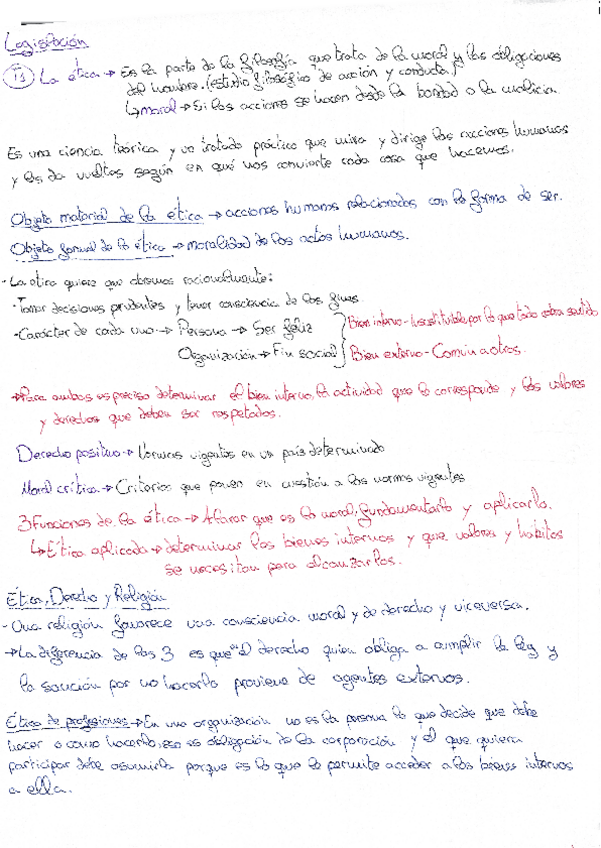 Legislación
T1 La ética → Es la parte de la filosofía que trata de la moral y las obligaciones
del hombre. (estudio filosófico de acción y conducta)
↳ Moral → Si las acciones se hacen desde la bondad o la malicia.
Es una ciencia teórica y un tratado práctico que mira y dirige las acciones humanas
y les da vueltas según en qué nos conviente cada cosa que hacemos.
Objeto material de la ética → acciones humanas relacionadas con la forma de ser.
Objeto formal de la ética → moralidad de los actos humanos.
- La etica quiere que obremos racionalmente:
· Tomar decisiones prudentes y tener consciencia de los fines.
- Carácter de cada uno → Persona → Ser feliz
Bien interno - Insustituible, por lo que todo cobra sentido
Organización → Fin social
Bien externo - Común a otros.
→ Para ambos es preciso determinar el bien interno, la actividad que le corresponde y los valores
y derechos que deben ser respetados.
Derecho positivo → Normas vigentes en un país determinado
Moral crítica → Criterios que ponen en cuestión a las normas vigentes
3 Funciones de la ética → Aclarar que es la moral, fundamentarla y aplicarla.
↳ Ética aplicada → determinar los bienes internos y que valores y habitos
se necesitan para alcanzarlos.
Ética, Derecho y Religión
- Una religión favorece una consciencia moral y de derecho y viceversa.
→ La diferencia de las 3 es que el derecho quien obliga a cumplir la ley y
la sanción por no hacerlo proviene de agentes externos.
Ética de profesiones → En una organización no es la persona la que decide que debe
hacer o como hacerlo, eso es obligación de la corporación y el que quiera
participar debe asumirla porque es lo que le permite acceder a los bienes internos
a ella.